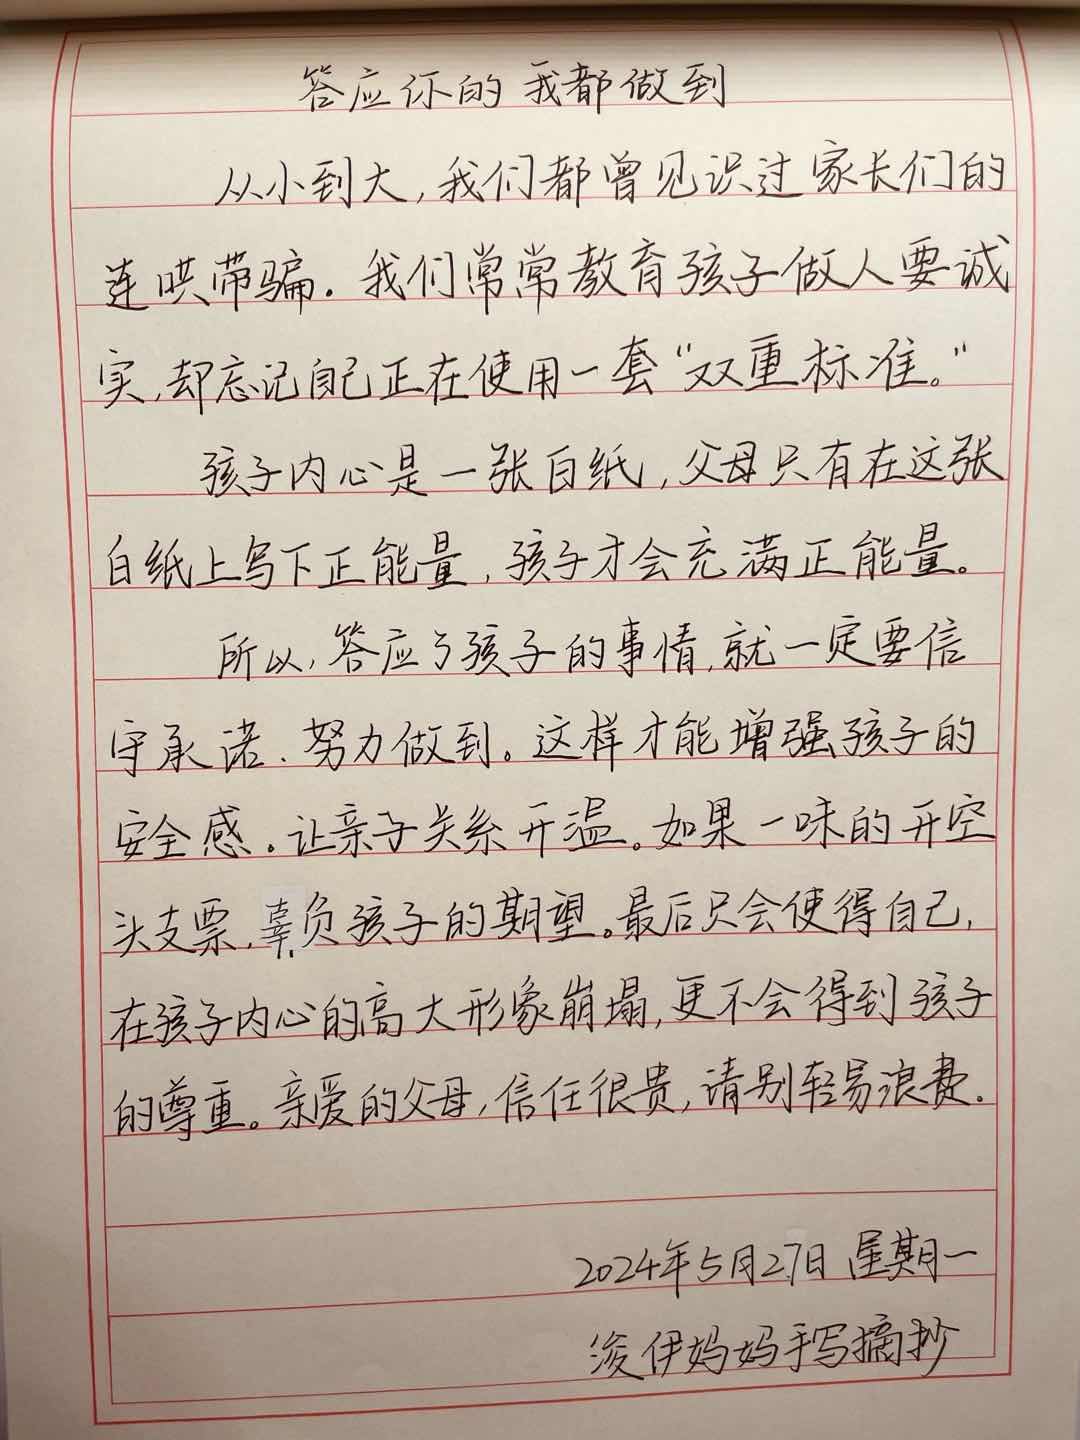 答应你的 我都做到
从小到大,我们都曾见识过家长们的
连哄带骗.我们常常教育孩子做人要诚
实,却忘记自己正在使用一套“双重标准。”
孩子内心是一张白纸,父母只有在这张
白纸上写下正能量,孩子才会充满正能量。
所以,答应了孩子的事情,就一定要信
守承诺、努力做到。这样才能增强孩子的
安全感。让亲子关系升温。如果一味的开空
头支票,辜负孩子的期望。最后只会使得自己,
在孩子内心的高大形象崩塌,更不会得到孩子
的尊重。亲爱的父母,信任很贵,请别轻易浪费.
2024年5月27日 星期一
浚伊妈妈手写摘抄